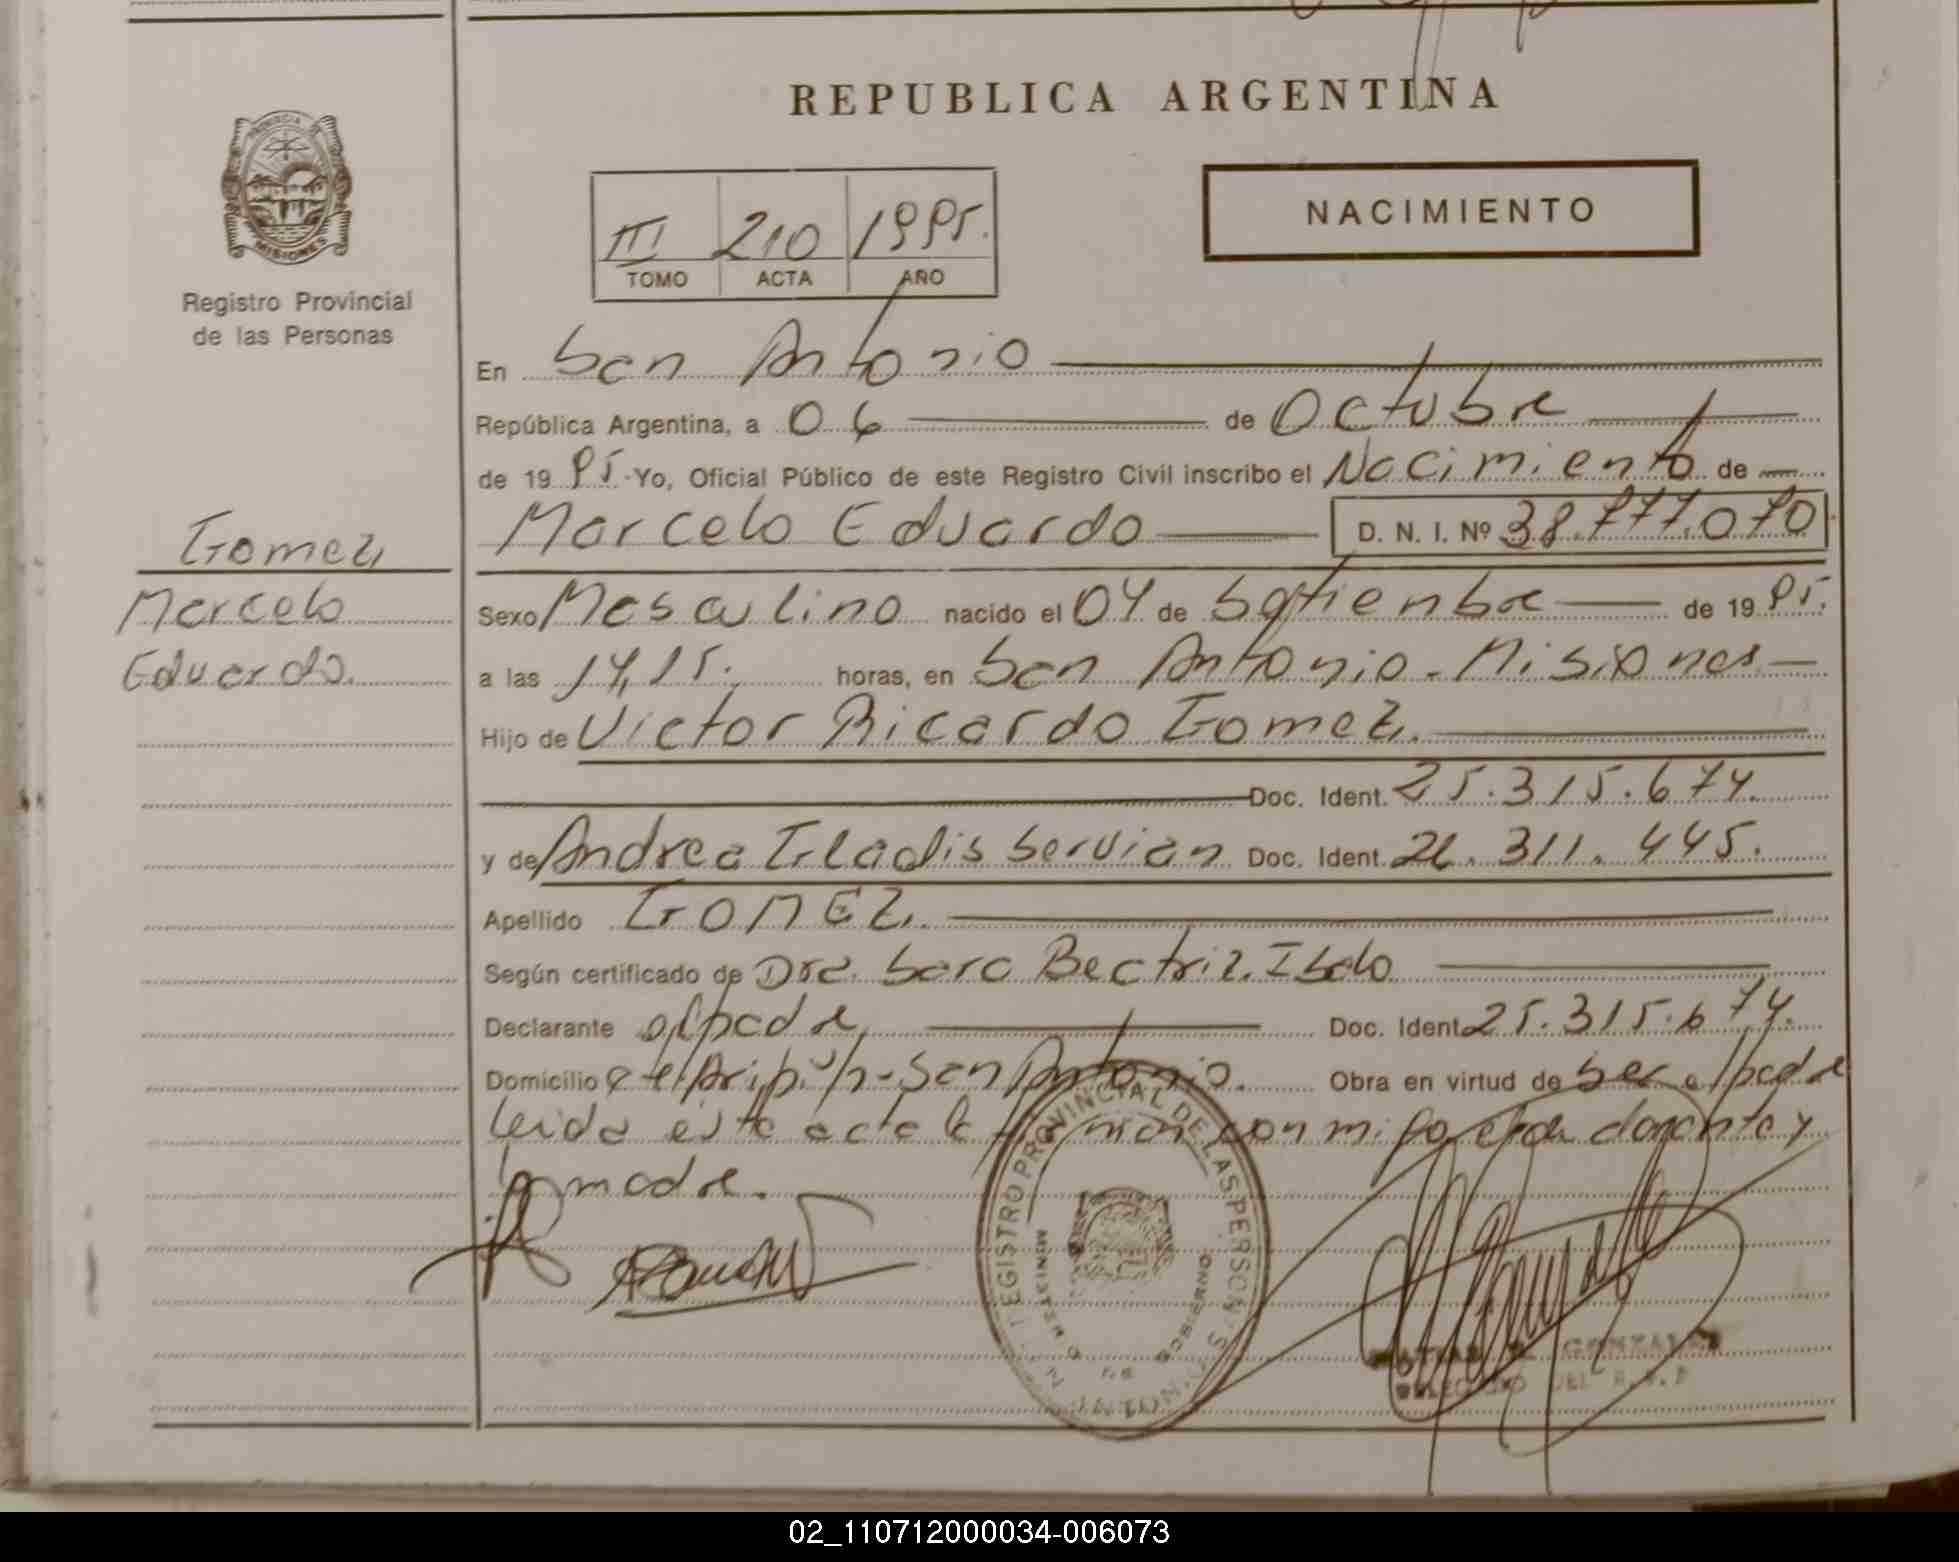 REPUBLICA ARGENTINA
PROVINCIA DE
MISIONES
Registro Provincial
de las Personas
NACIMIENTO
III 210 1995.
TOMO ACTA AÑO
En San Antonio
República Argentina, a 06 de Octubre
de 1995. Yo, Oficial Público de este Registro Civil inscribo el Nacimiento de
Gomez
Marcelo Eduardo D. N. I. Nº 38.777.070
Marcelo
Eduardo.
Sexo Masculino nacido el 04 de Septiembre de 1995.
a las 14,15. horas, en San Antonio - Misiones
Hijo de Victor Ricardo Gomez.
Doc. Ident. 25.315.674.
y de Andrea Gladis Servian Doc. Ident. 311.445.
Apellido GOMEZ.
Según certificado de Dra. Sara Beatriz
Declarante el padre Doc. Ident. 25.315.674.
Domicilio San Antonio. Obra en virtud de ser el padre
Leida esta acta la firman conmigo el declarante y
la madre.
REGISTRO PROVINCIAL DE LAS PERSONAS
MINISTERIO DE GOBIERNO
GONZALEZ
DELEGADO DEL R.P.P
02_110712000034-006073